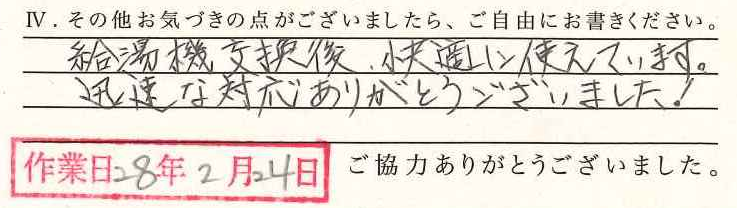 Ⅳ．その他お気づきの点がございましたら、ご自由にお書きください。
給湯機交換後、快適に使えています。
迅速な対応ありがとうございました！
作業日28年2月24日
ご協力ありがとうございました。